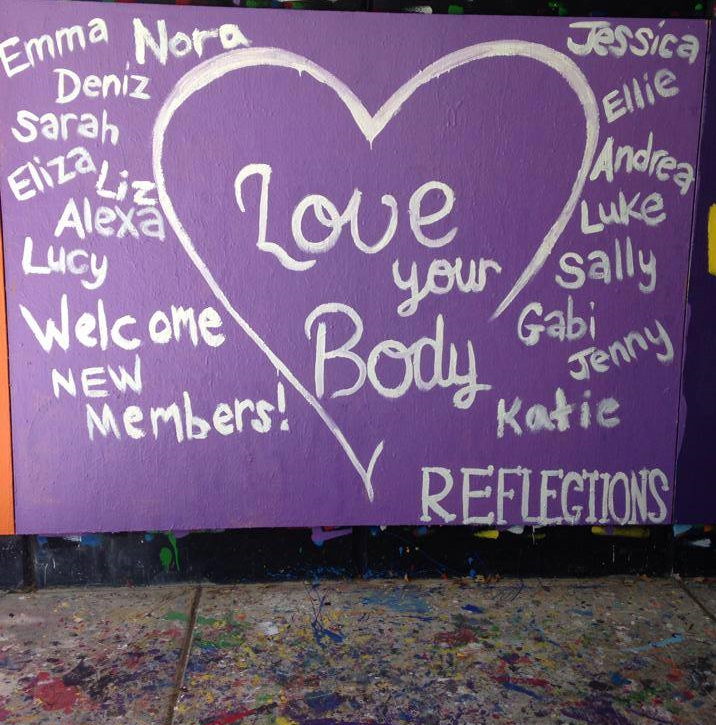 Emma Nora
Deniz
Sarah
Eliza Liz
Alexa
Lucy
Welcome
NEW
Members!
Love
your
Body
Jessica
Ellie
Andrea
Luke
Sally
Gabi
Jenny
Katie
REFLECTIONS